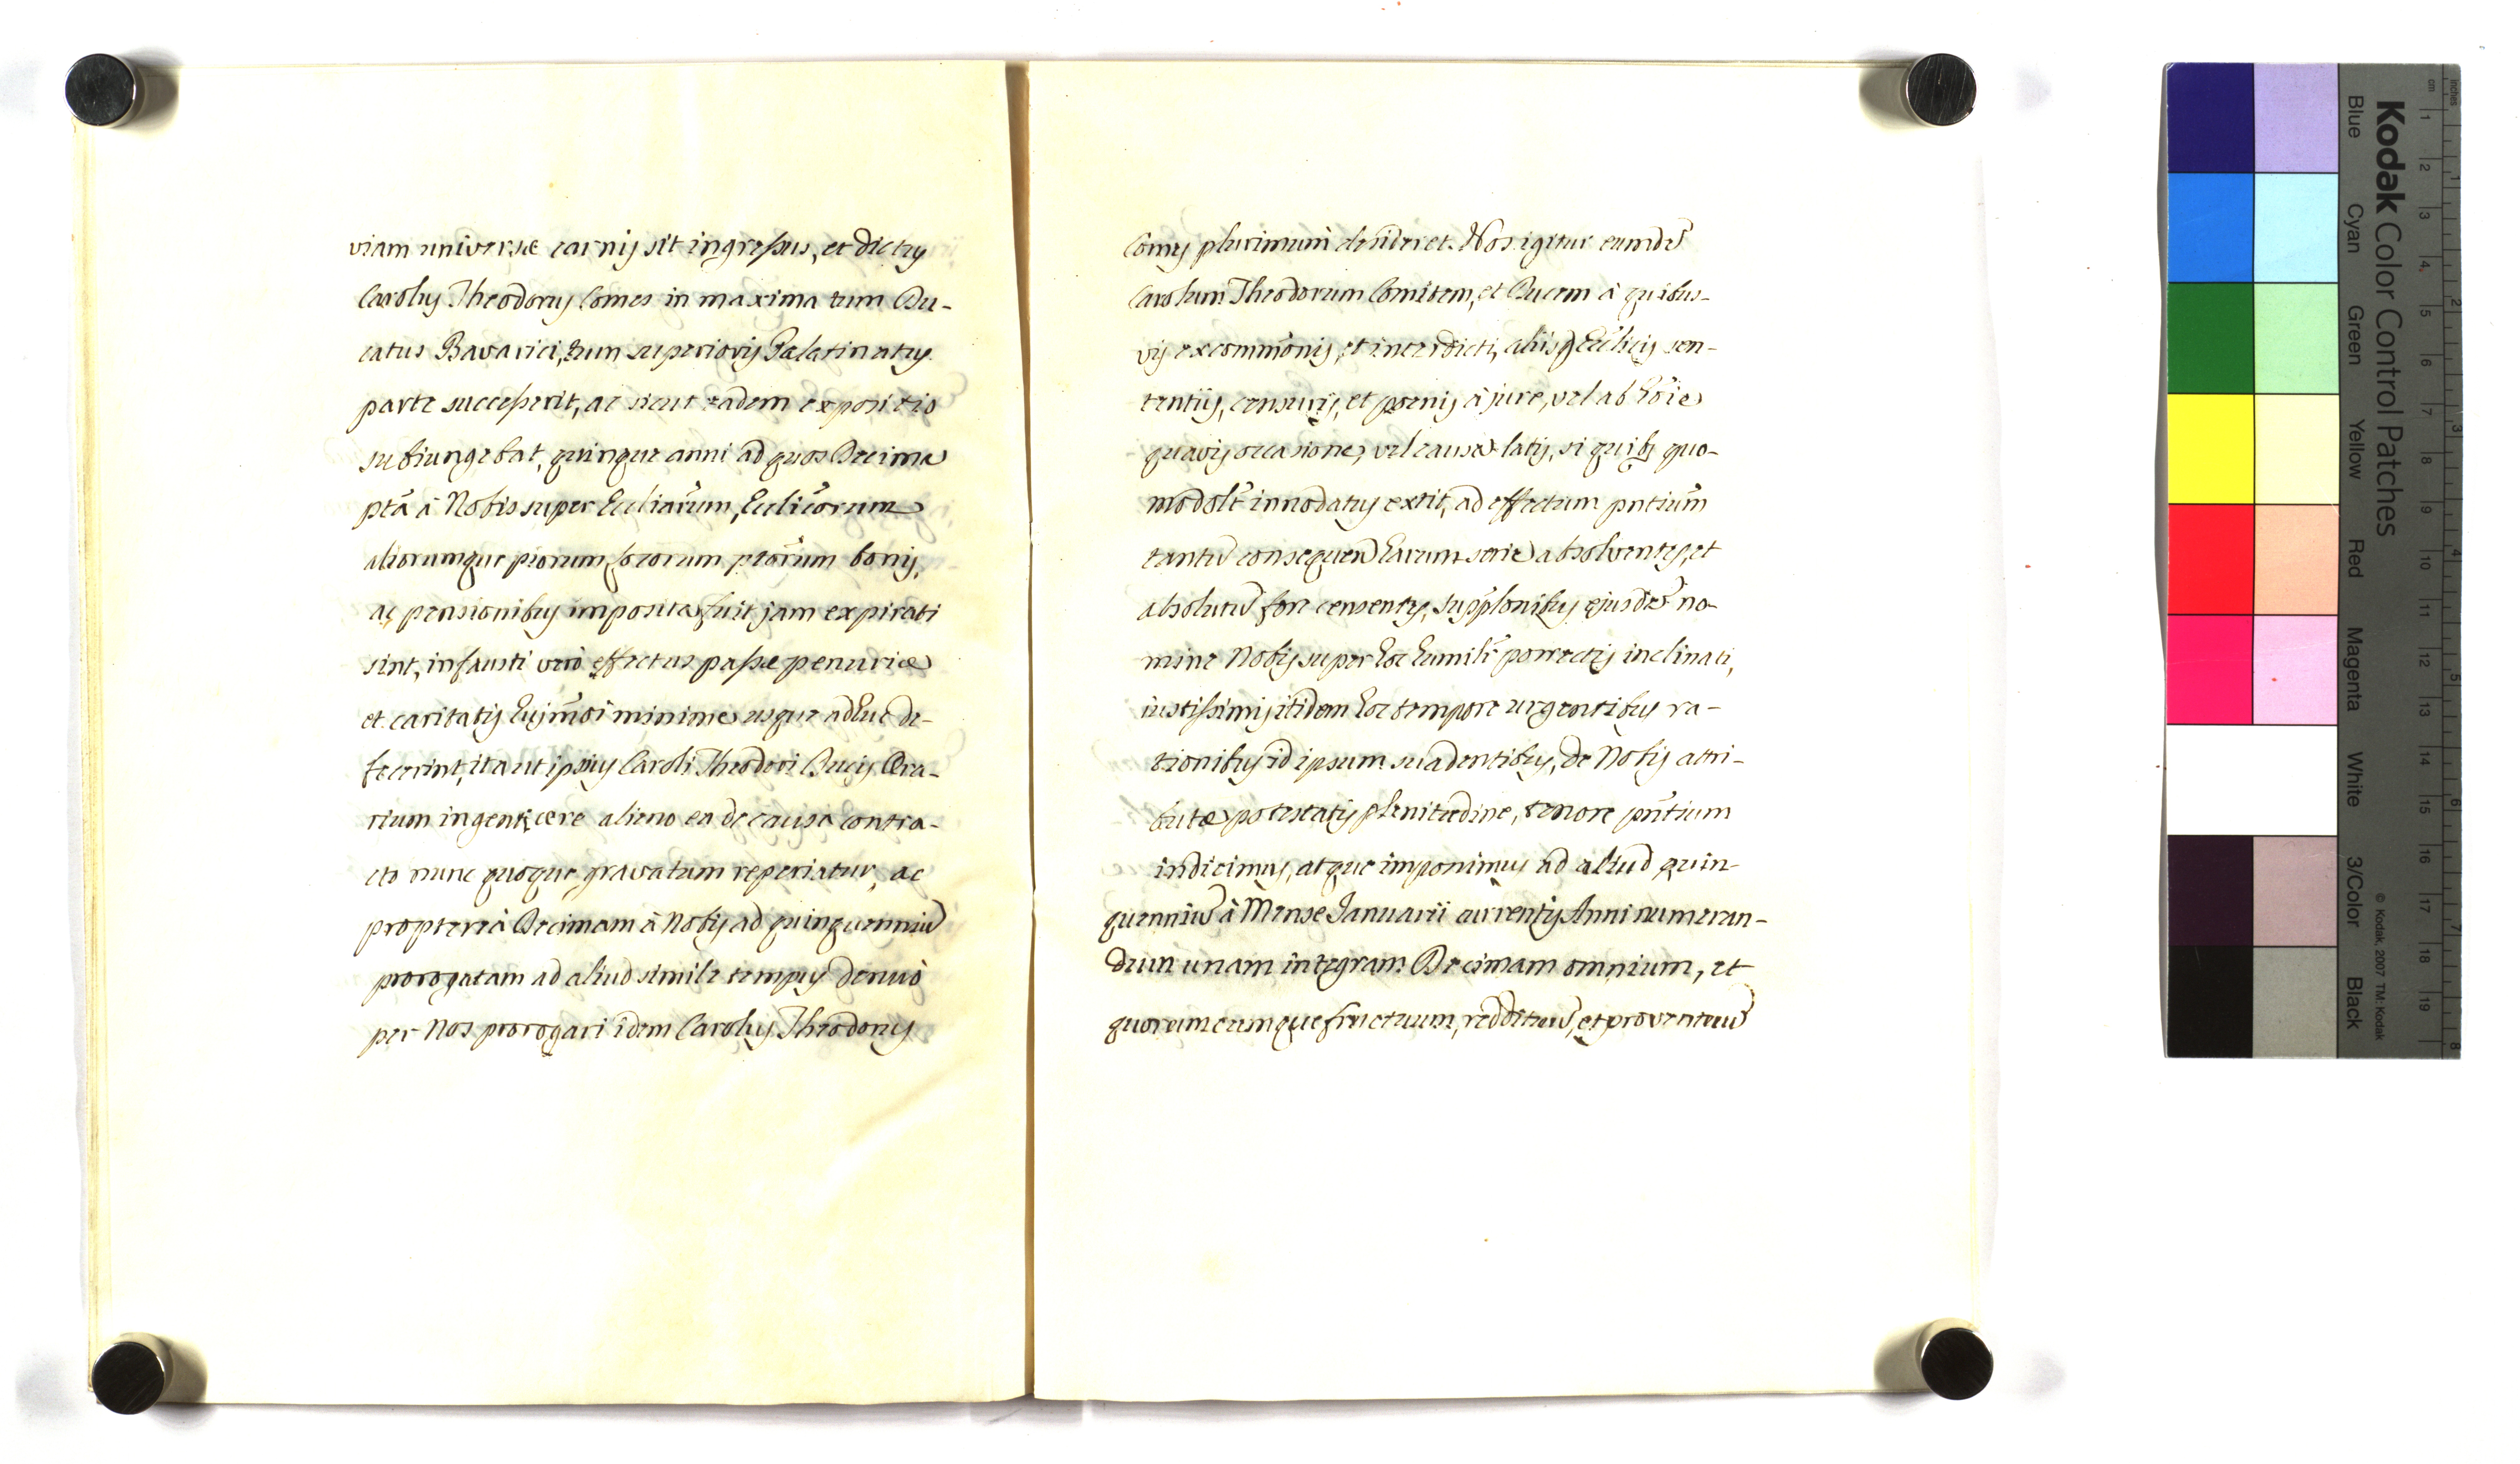 viam universæ carnis sit ingressus, et dictus
Carolus Theodorus Comes in maxima tum Du-
catus Bavarici, tum superioris Palatinatus
parte successerit, ac sicut eadem expositio
subiungebat, quinque anni ad quos Decima
ptã à Nobis super Eccliarum, Ecclicorum
aliorumque piorum locorum ptorum bonis,
ac pensionibus imposita fuit jam expirati
sint, infausti verò effectus passæ penuriæ
et caritatis hujmõi minime usque adhuc de-
fecerint, ita ut ipsius Caroli Theodori Ducis Æra-
rium ingenti ære alieno ea de causa contra-
cto nunc quoque gravatum reperiatur, ac
propterea Decimam à Nobis ad quinquenniũ
prorogatam ad aliud simile tempus denuò
per Nos prorogari idem Carolus Theodorus
Comes plurimum desideret. Nos igitur eumdẽ
Carolum Theodorum Comitem, et Ducem à quibus-
vis excommõnis, et interdicti, aliisq Ecclicis sen-
tentiis, censuris, et poenis à jure, vel ab hõie
quavis occasione, vel causa latis, si quibs quo-
modolt innodatus extit, ad effectum pntium
tantũ consequeñ harum serie absolventes, et
absolutũ fore censentes, supplonibus ejusdẽ no-
mine Nobis super hoc humilr porrectis inclinati,
iustissimis itidem hoc tempore urgentibus ra-
tionibus id ipsum suadentibus, de Nobis attri-
butæ potestatis plenitudine, tenore pntium
indicimus, atque imponimus ad aliud quin-
quenniũ à Mense Januarii currentis Anni numeran-
dum unam integram Decimam omnium, et
quorumcumque fructuum, reddituũ, et proventuũ
Kodak Color Control Patches
Blue Cyan Green Yellow Red Magenta White 3/Color Black
© Kodak, 2007 TM: Kodak
inches 1 2 3 4 5 6 7 8
cm 1 2 3 4 5 6 7 8 9 10 11 12 13 14 15 16 17 18 19